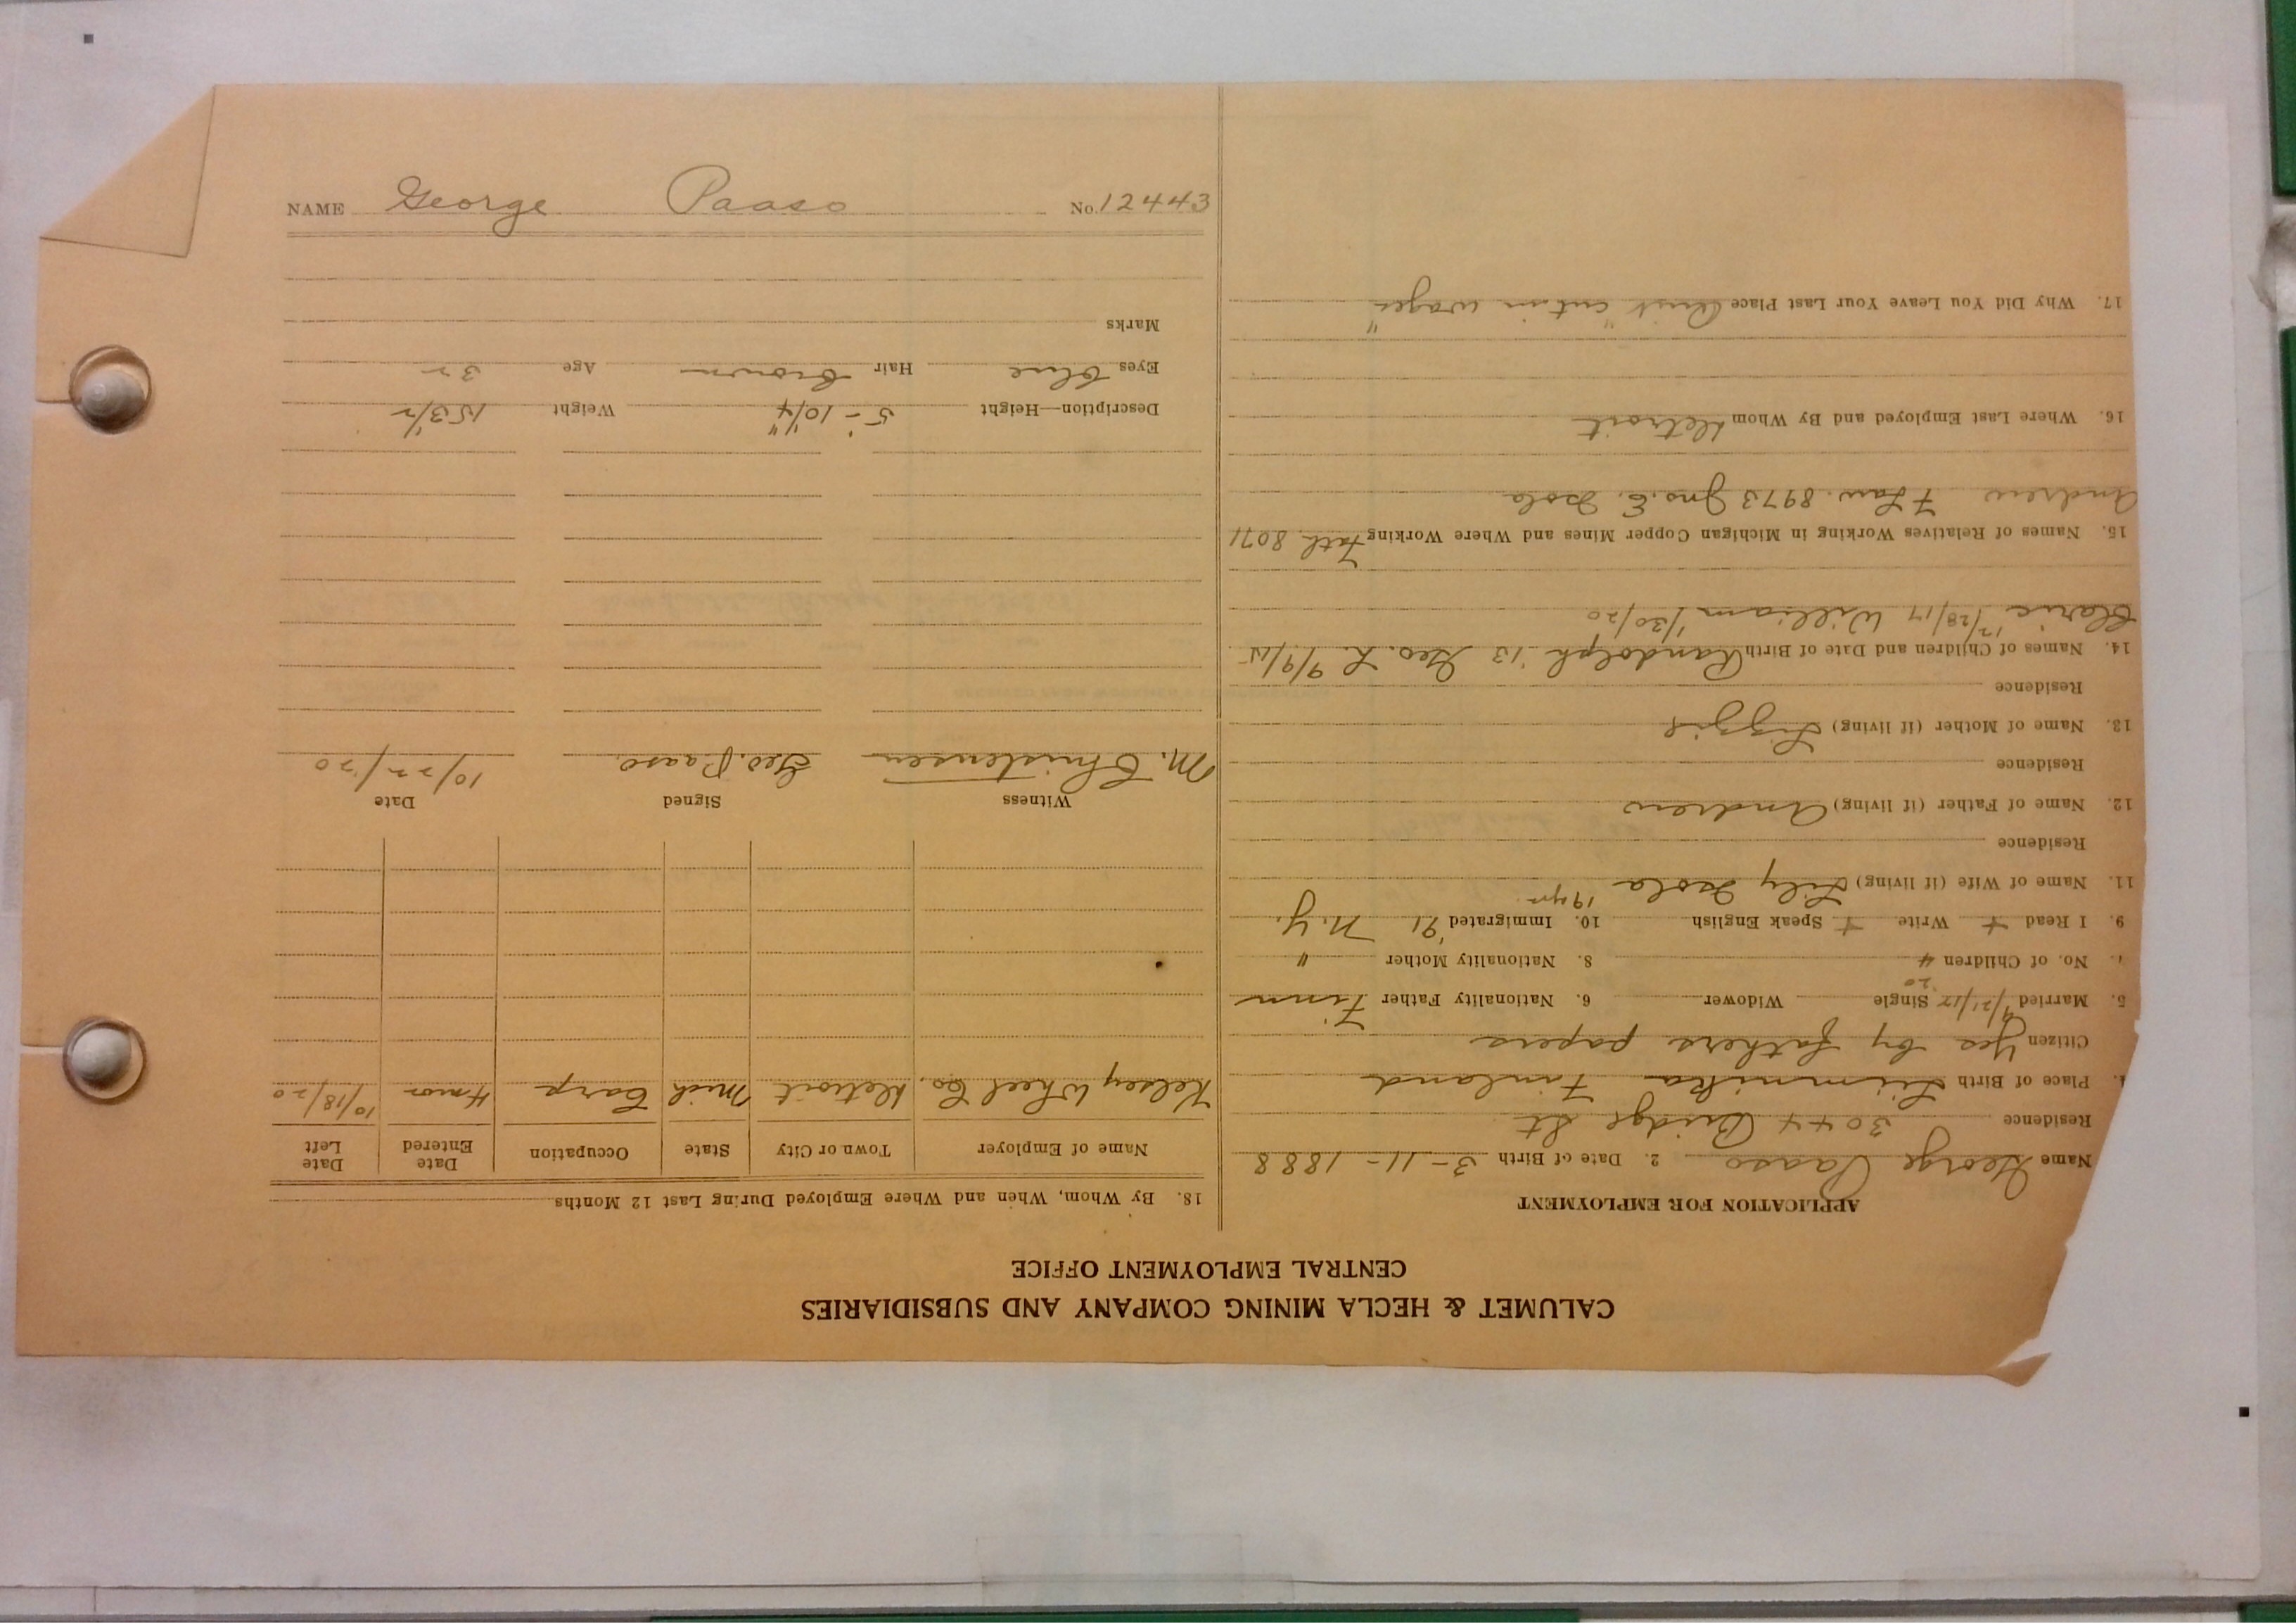 CALUMET & HECLA MINING COMPANY AND SUBSIDIARIES
CENTRAL EMPLOYMENT OFFICE
APPLICATION FOR EMPLOYMENT
Name George Paaso 2. Date of Birth 3-11-1888
Residence 3044 Bridge St
Place of Birth Finland
Citizen Yes by fathers papers
5. Married Single Widower 6. Nationality Father Finn
20
No. of Children 4 8. Nationality Mother "
9. I Read + Write + Speak English 10. Immigrated '91 N.Y.
19 yrs
11. Name of Wife (if living) Lily Isola
Residence
12. Name of Father (if living) Andrew
Residence
13. Name of Mother (if living) Lizzie
Residence
14. Names of Children and Date of Birth Randolph '13 Geo. L 9/9/15
12/28/17 William 1/30/20
15. Names of Relatives Working in Michigan Copper Mines and Where Working Fath. 8071
Andrew F Law. 8973 Jno. E. Isola
16. Where Last Employed and By Whom Detroit
17. Why Did You Leave Your Last Place Quit "cut in wages"
18. By Whom, When and Where Employed During Last 12 Months
Name of Employer Town or City State Occupation Date Entered Date Left
Kelsey Wheel Co. Detroit Mich Carp 4 mos 10/18/20
Witness Signed Date
M. Christensen Geo. Paaso 10/22/20
Description—Height 5'-10 1/4" Weight 153 1/2
Eyes Blue Hair Brown Age 32
Marks
NAME George Paaso No. 12443